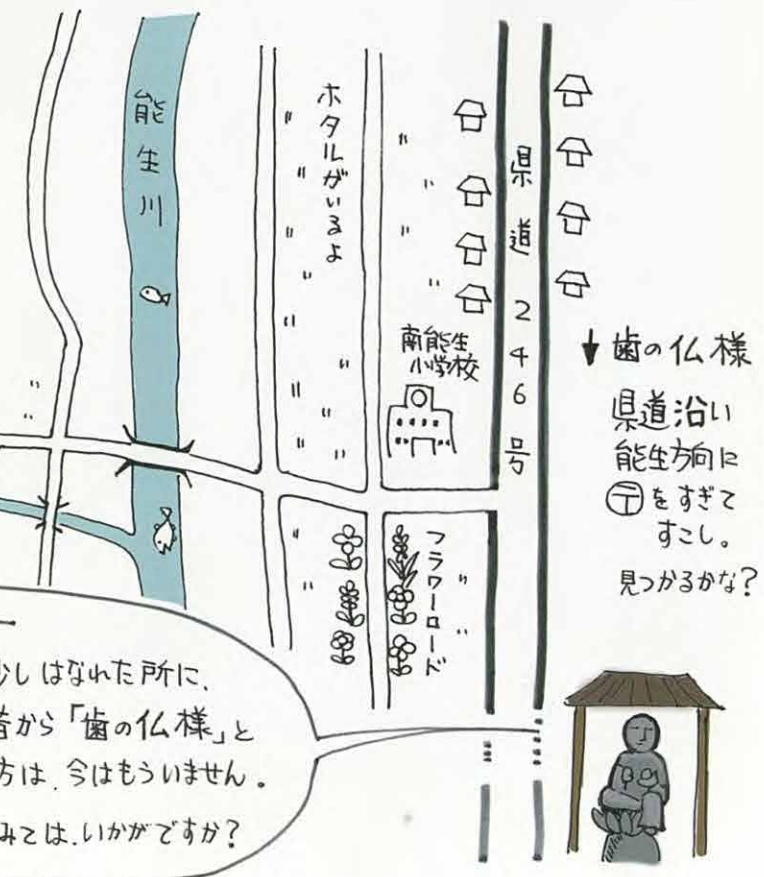 能生川
ホタルがいるよ
県道246号
南能生
小学校
↓歯の仏様
県道沿い
能生方向に
〒をすぎて
すこし。
見つかるかな?
フラワーロード
少しはなれた所に、
昔から「歯の仏様」と
方は、今はもういません。
みては、いかがですか?